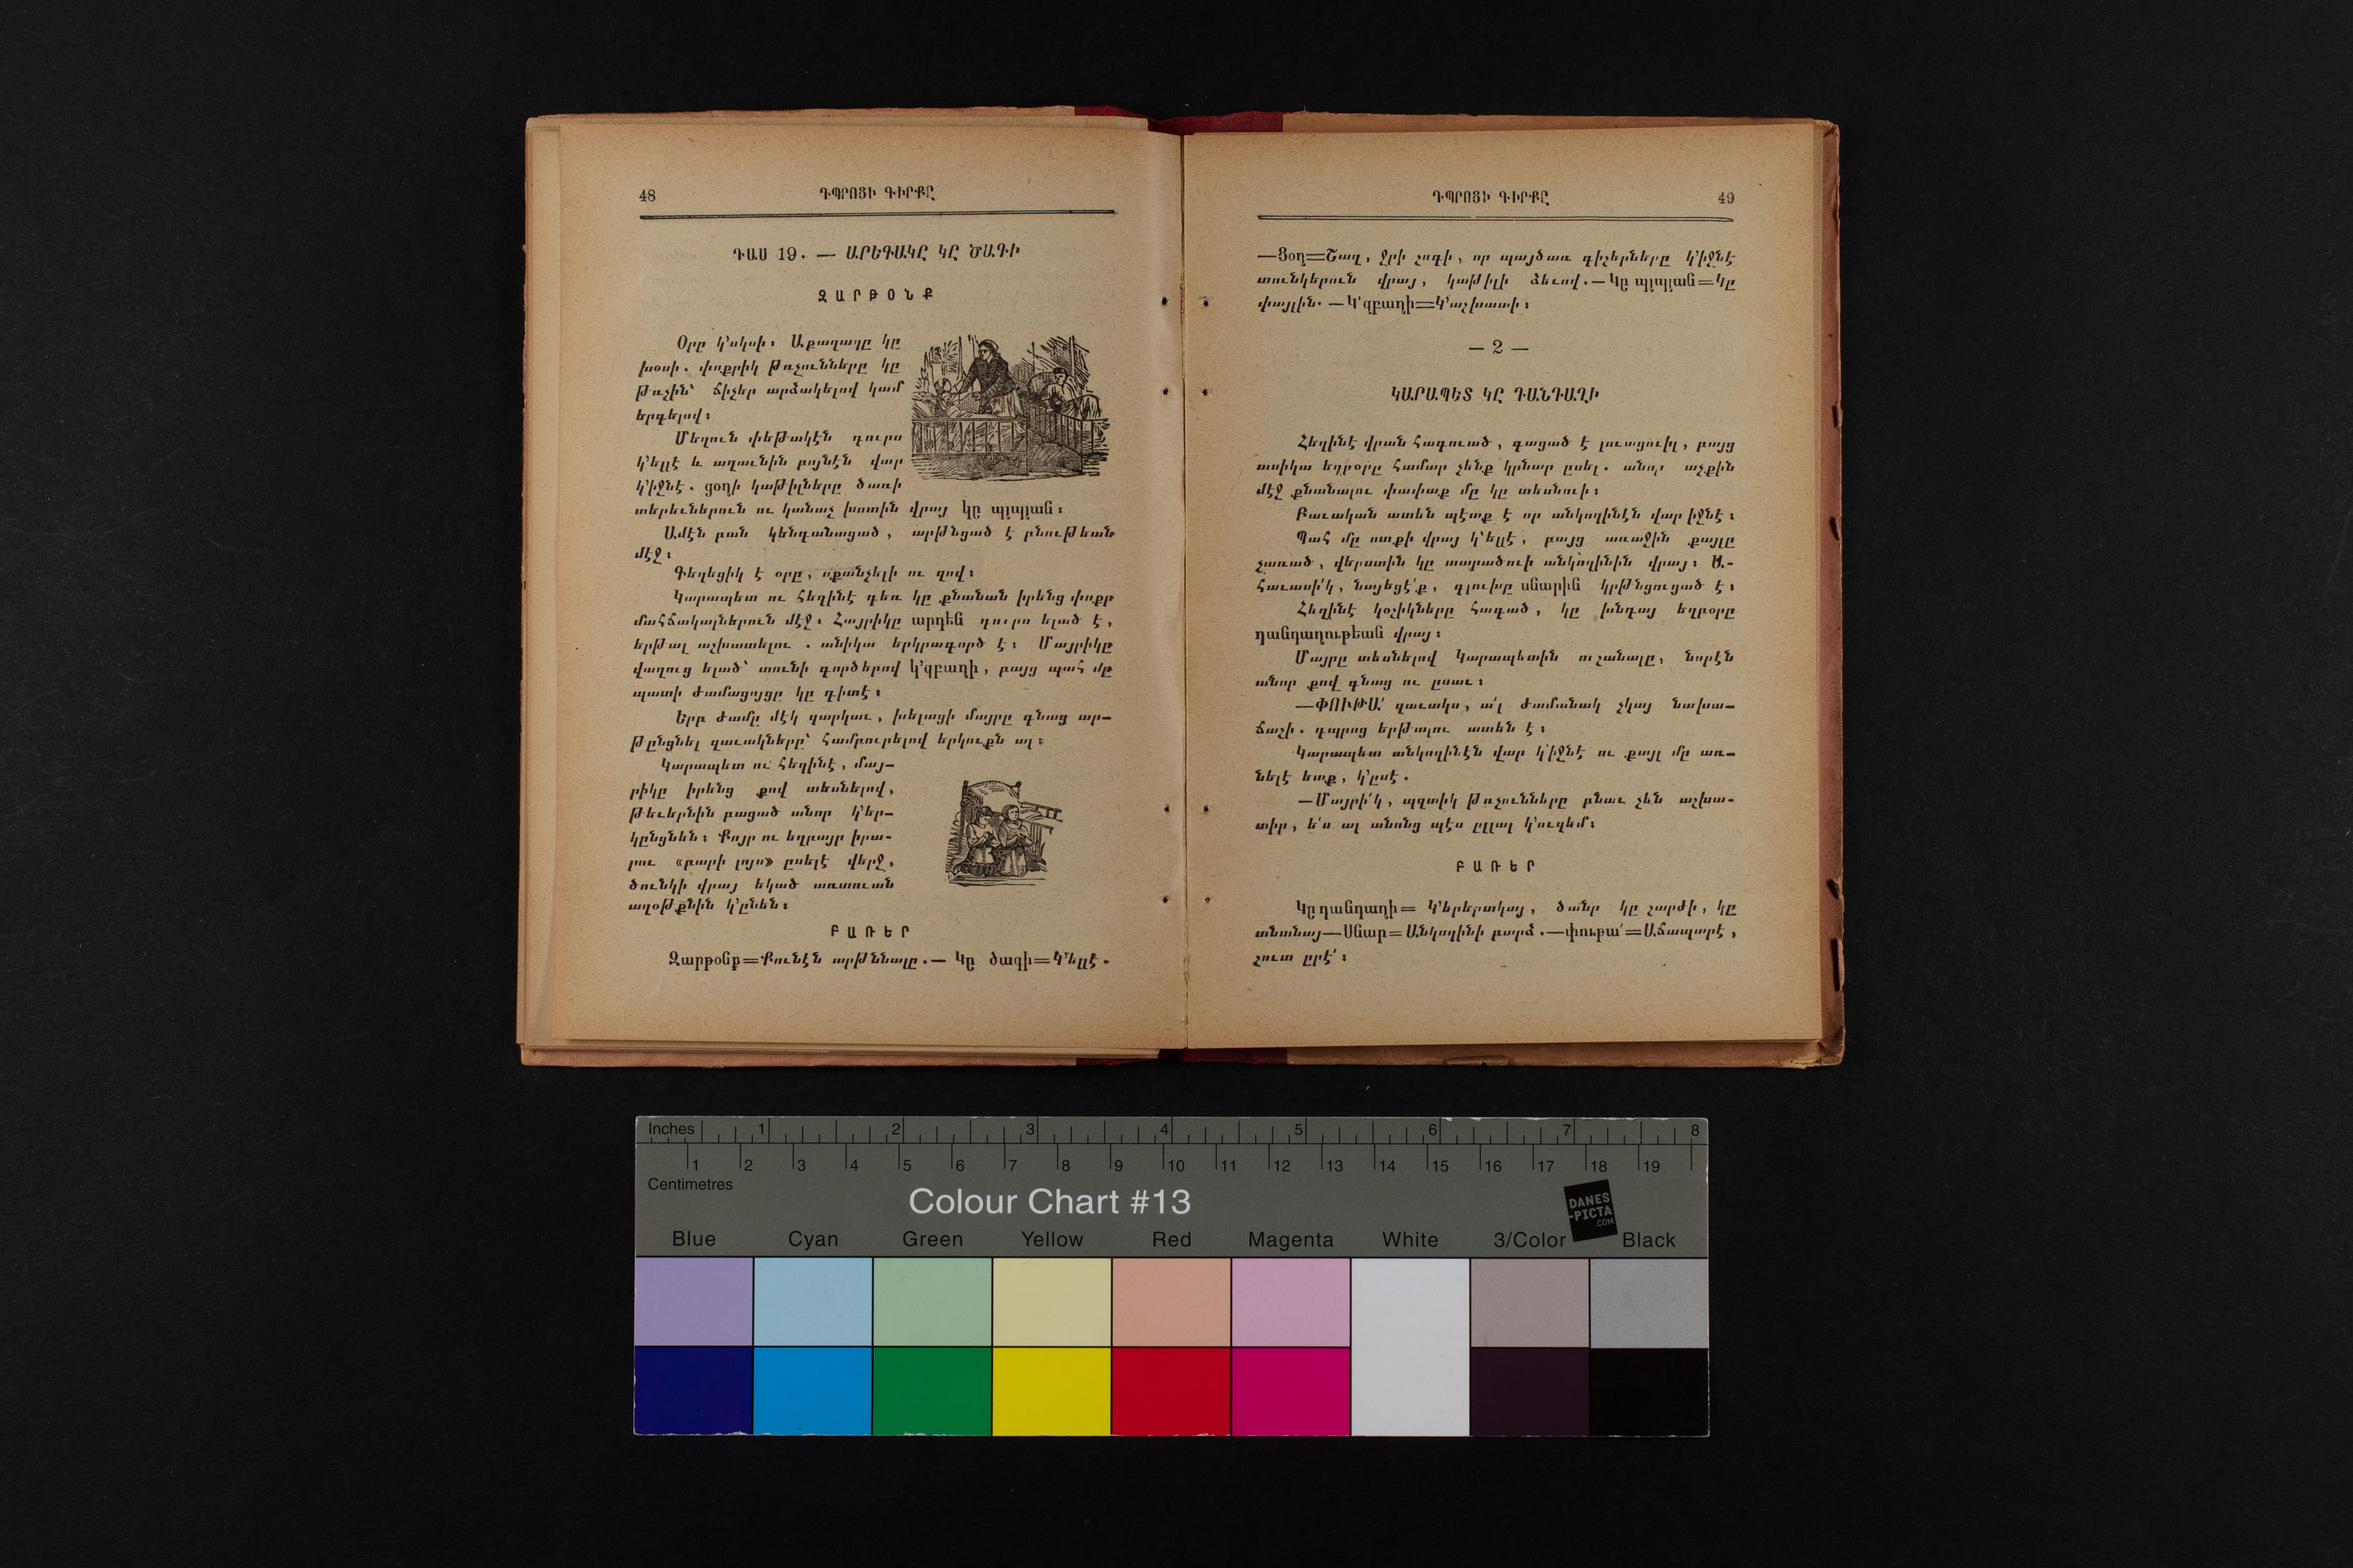 48
ԴՊՐՈՑԻ ԳԻՐՔԸ
ԴԱՍ 19. — ԱՐԵԳԱԿԸ ԿԸ ԾԱԳԻ
ԶԱՐԹՕՆՔ
Օրը կ՚սկսի։ Աքաղաղը կը
խօսի. փոքրիկ թռչունները կը
թռչին՝ ճիչեր արձակելով կամ
երգելով։
Մեղուն փեթակէն դուրս
կ՚ելլէ և աղաւնին բոյնէն վար
կ՚իջնէ. ցօղի կաթիլները ծառի
տերեւներուն ու կանաչ խոտին վրայ կը պլպլան։
Ամէն բան կենդանացած, արթնցած է բնութեան
մէջ։
Գեղեցիկ է օրը, սքանչելի ու զով։
Կարապետ ու հեղինէ դեռ կը քնանան իրենց փոքր
մահճակալներուն մէջ։ Հայրիկը արդեն դուրս ելած է,
երթալ աշխատելու. անիկա երկրագործ է։ Մայրիկը
վաղուց ելած՝ տունի գործերով կ՚զբաղի, բայց պահ մը
պատի ժամացոյցը կը դիտէ։
Երբ ժամը մէկ զարկաւ, խելացի մայրը գնաց ար-
թընցնել զաւակները՝ համբուրելով երկուքն ալ։
Կարապետ ու հեղինէ, մայ-
րիկը իրենց քով տեսնելով,
թեւերնին բացած անոր կ՚եր-
կընցնեն։ Քոյր ու եղբայր իրա-
րու «բարի լոյս» ըսելէ վերջ,
ծունկի վրայ եկած առտուան
աղօթքնին կ՚ընեն։
ԲԱՌԵՐ
Զարթօնք=Քունէն արթննալը.— Կը ծագի=Կ՚ելլէ.
ԴՊՐՈՑԻ ԳԻՐՔԸ
49
—Ցօղ=Շաղ, ջրի շոգի, որ պայծառ գիշերները կ՚իջնէ
տունկերուն վրայ, կաթիլի ձեւով.—Կը պլպլան=Կը
փայլին.—Կ՚զբաղի=Կ՚աշխատի։
— 2 —
ԿԱՐԱՊԵՏ ԿԸ ԴԱՆԴԱՂԻ
Հեղինէ վրան հագուած, գացած է լուացուիլ, բայց
ասիկա եղբօրը համար չենք կրնար ըսել. անոր աչքին
մէջ քնանալու փափաք մը կը տեսնուի։
Բաւական ատեն պէտք է որ անկողինէն վար իջնէ։
Պահ մը ոտքի վրայ կ՚ելլէ, բայց առաջին քայլը
չառած, վերստին կը տարածուի անկողինին վրայ։ Ա-
հաւասի՛կ, նայեցէ՛ք, գլուխը սնարին կրթնցուցած է։
Հեղինէ կօշիկները հագած, կը խնդայ եղբօրը
դանդաղութեան վրայ։
Մայրը տեսնելով Կարապետին ուշանալը, նորէն
անոր քով գնաց ու ըսաւ։
—ՓՈՒԹԱ՛ զաւակս, ա՛լ ժամանակ չկայ նախա-
ճաշի. դպրոց երթալու ատեն է։
Կարապետ անկողինէն վար կ՚իջնէ ու քայլ մը առ-
նելէ ետք, կ՚ըսէ.
—Մայրի՛կ, պզտիկ թռչունները բնաւ չեն աշխա-
տիր, ե՛ս ալ անոնց պէս ըլլալ կ՚ուզեմ։
ԲԱՌԵՐ
Կը դանդաղի= Կ՚երերտկայ, ծանր կը շարժի, կը
տնտնայ—Սնար=Անկողինի բարձ.—փութա՛=Աճապարէ,
շուտ ըրէ՛։
Inches 1 2 3 4 5 6 7 8
1 2 3 4 5 6 7 8 9 10 11 12 13 14 15 16 17 18 19
Centimetres
Colour Chart #13
DANES
-PICTA
.COM
Blue Cyan Green Yellow Red Magenta White 3/Color Black